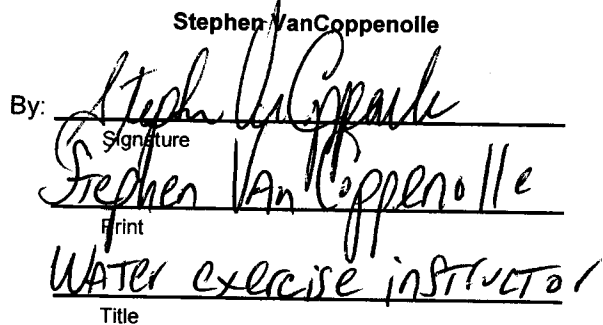 Stephen VanCoppenolle
By: Stephen VanCoppenolle
Signature
Stephen Van Coppenolle
Print
Water exercise instructor
Title